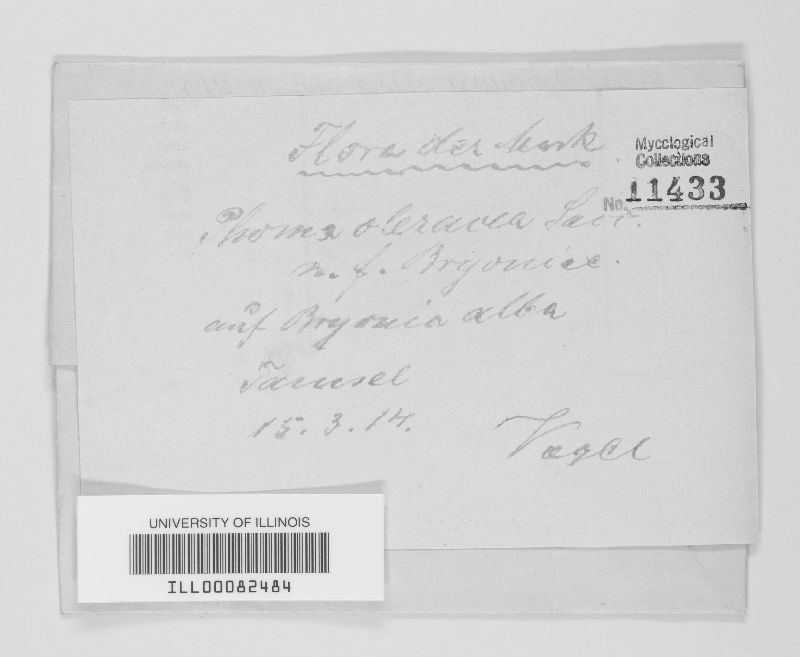 Flora der Mark
Mycological
Collections
No. 11433
Phoma oleracea Sacc.
n. f. Bryoniae.
auf Bryonia alba
Tamsel
15. 3. 14.
Vogel
UNIVERSITY OF ILLINOIS
ILL00082484